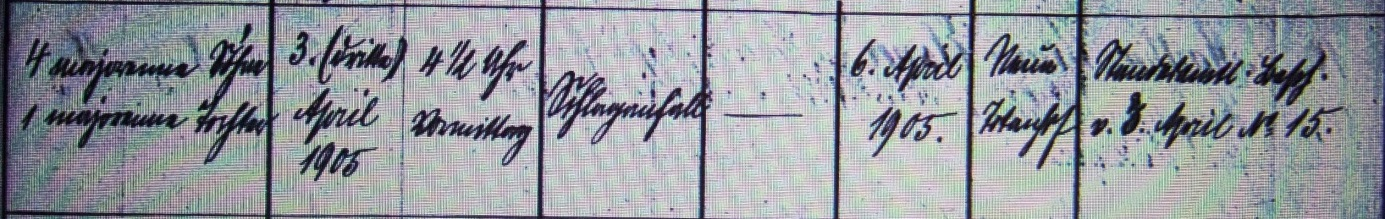 4 majorenne Söhne
1 majorenne Tochter
3. (dritte)
April
1905
4 1/2 Uhr
Vormittag
Schlaganfall
6. April
1905.
Standesamtl. Besch.
v. 3. April № 15.